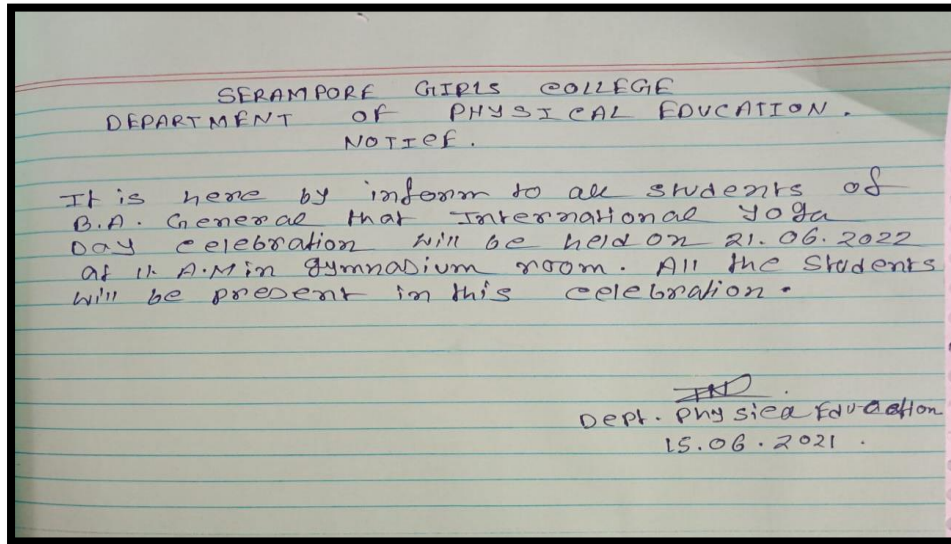 SERAMPORE GIRLS COLLEGE
DEPARTMENT OF PHYSICAL EDUCATION.
NOTICE.
It is here by inform to all students of
B.A. General that International Yoga
Day celebration will be held on 21.06.2022
at 11. A.M in gymnasium room. All the Students
will be present in this celebration.
Dept. Physical Education
15.06.2021.